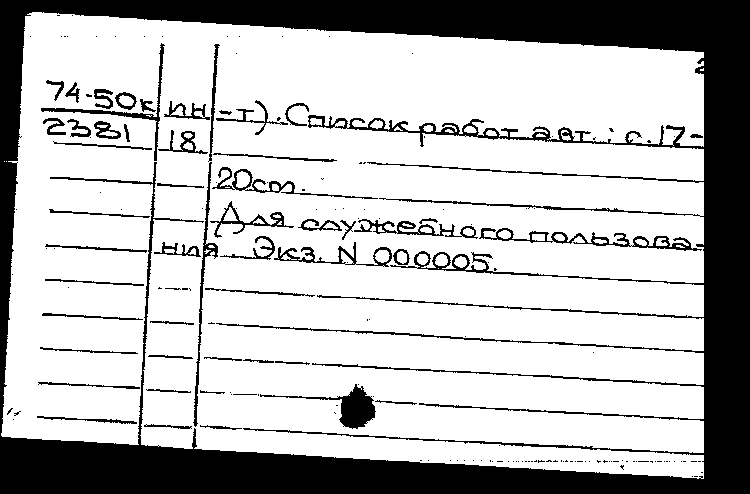 2
74-50к ин-т). Список работ авт.: с.17-
2381 18.
20см.
Для служебного пользова-
ния. Экз. N 000005.